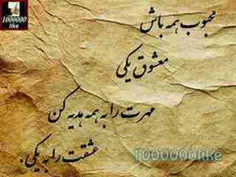 1000000
like
محبوب همه باش
معشوق یکی
مهرت را به همه هدیه کن
عشقت را به یکی.
1000000like